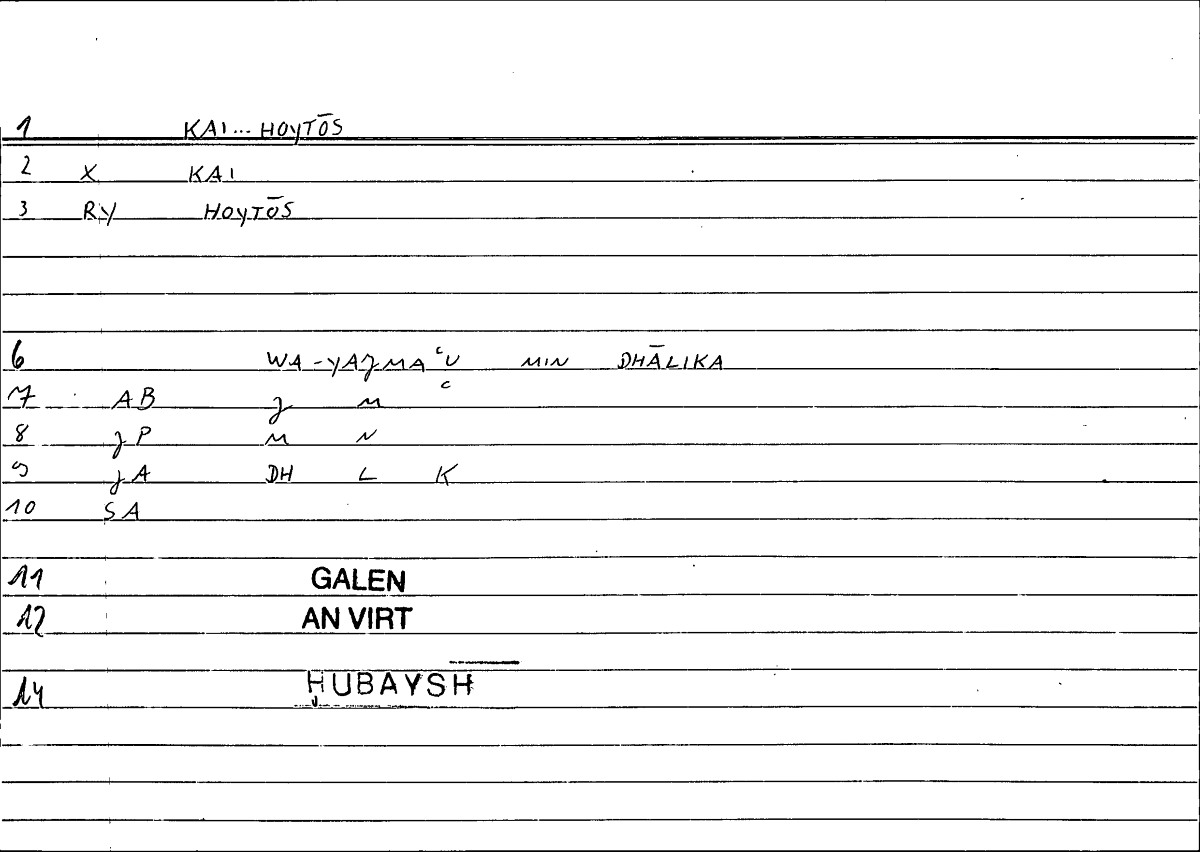 1 KAI...HOYTŌS
2 X KAI
3 RY HOYTŌS
6 WA-YAJMAʿU MIN DHĀLIKA
7 AB J M ʿ
8 JP M N
9 JA DH L K
10 SA
11 GALEN
12 AN VIRT
14 ḤUBAYSH